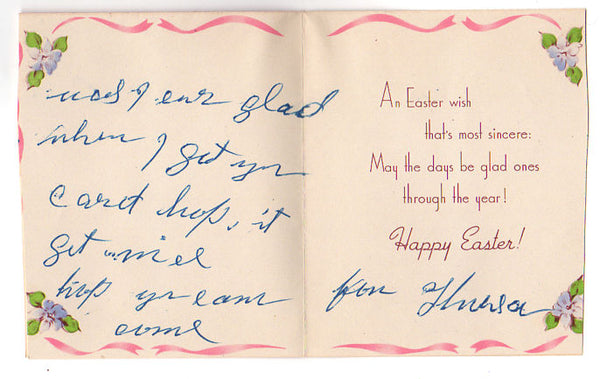 was I ear glad
when I get yr
card hop, it
get
hop yr can
come
An Easter wish
that's most sincere:
May the days be glad ones
through the year!
Happy Easter!
fon